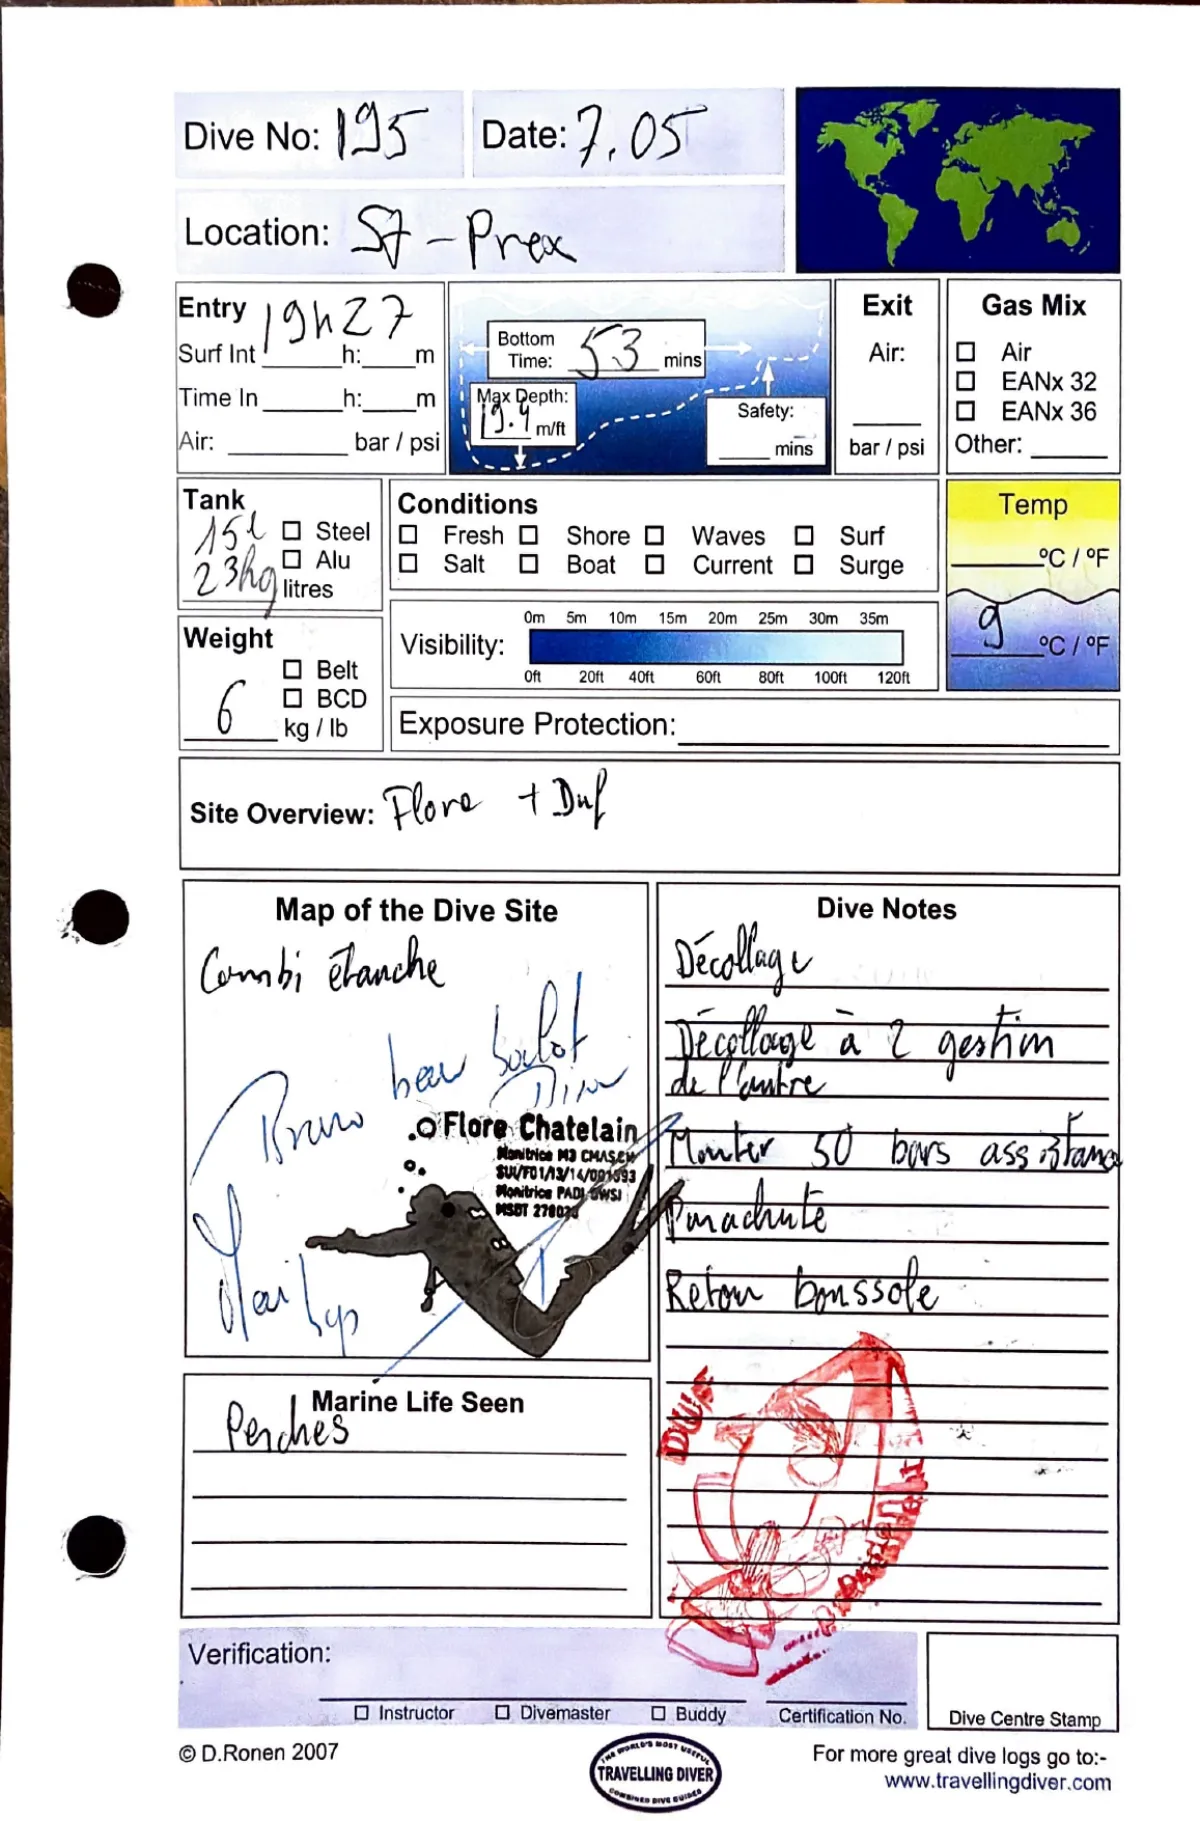 Dive No: 195
Date: 7.05
Location: St-Prex
Entry 19h27
Surf Int ____ h: ____ m
Time In ____ h: ____ m
Air: ____ bar / psi
Bottom Time: 53 mins
Max Depth: 19.4 m/ft
Safety: ____ mins
Exit
Air:
____
bar / psi
Gas Mix
☐ Air
☐ EANx 32
☐ EANx 36
Other: ____
Tank
15l ☐ Steel
☐ Alu
23kg litres
Conditions
☐ Fresh ☐ Shore ☐ Waves ☐ Surf
☐ Salt ☐ Boat ☐ Current ☐ Surge
Temp
____ ºC / ºF
9 ºC / ºF
Weight
☐ Belt
☐ BCD
6 kg / lb
0m 5m 10m 15m 20m 25m 30m 35m
Visibility:
0ft 20ft 40ft 60ft 80ft 100ft 120ft
Exposure Protection: ____
Site Overview: Flore + Duf
Map of the Dive Site
Combi étanche
Bravo beau boulot
Flore Chatelain
Monitrice M3 CMAS.CH
SUI/F01/13/14/001093
Monitrice PADI OWSI
MSDT
Dive Notes
Décollage
Décollage à 2 gestion
de l'autre
Monter 50 bars assistance
Parachute
Retour boussole
Marine Life Seen
Perches
Verification:
☐ Instructor ☐ Divemaster ☐ Buddy Certification No.
Dive Centre Stamp
© D.Ronen 2007
THE WORLD'S MOST USEFUL
TRAVELLING DIVER
COMBINED DIVE GUIDES
For more great dive logs go to:-
www.travellingdiver.com